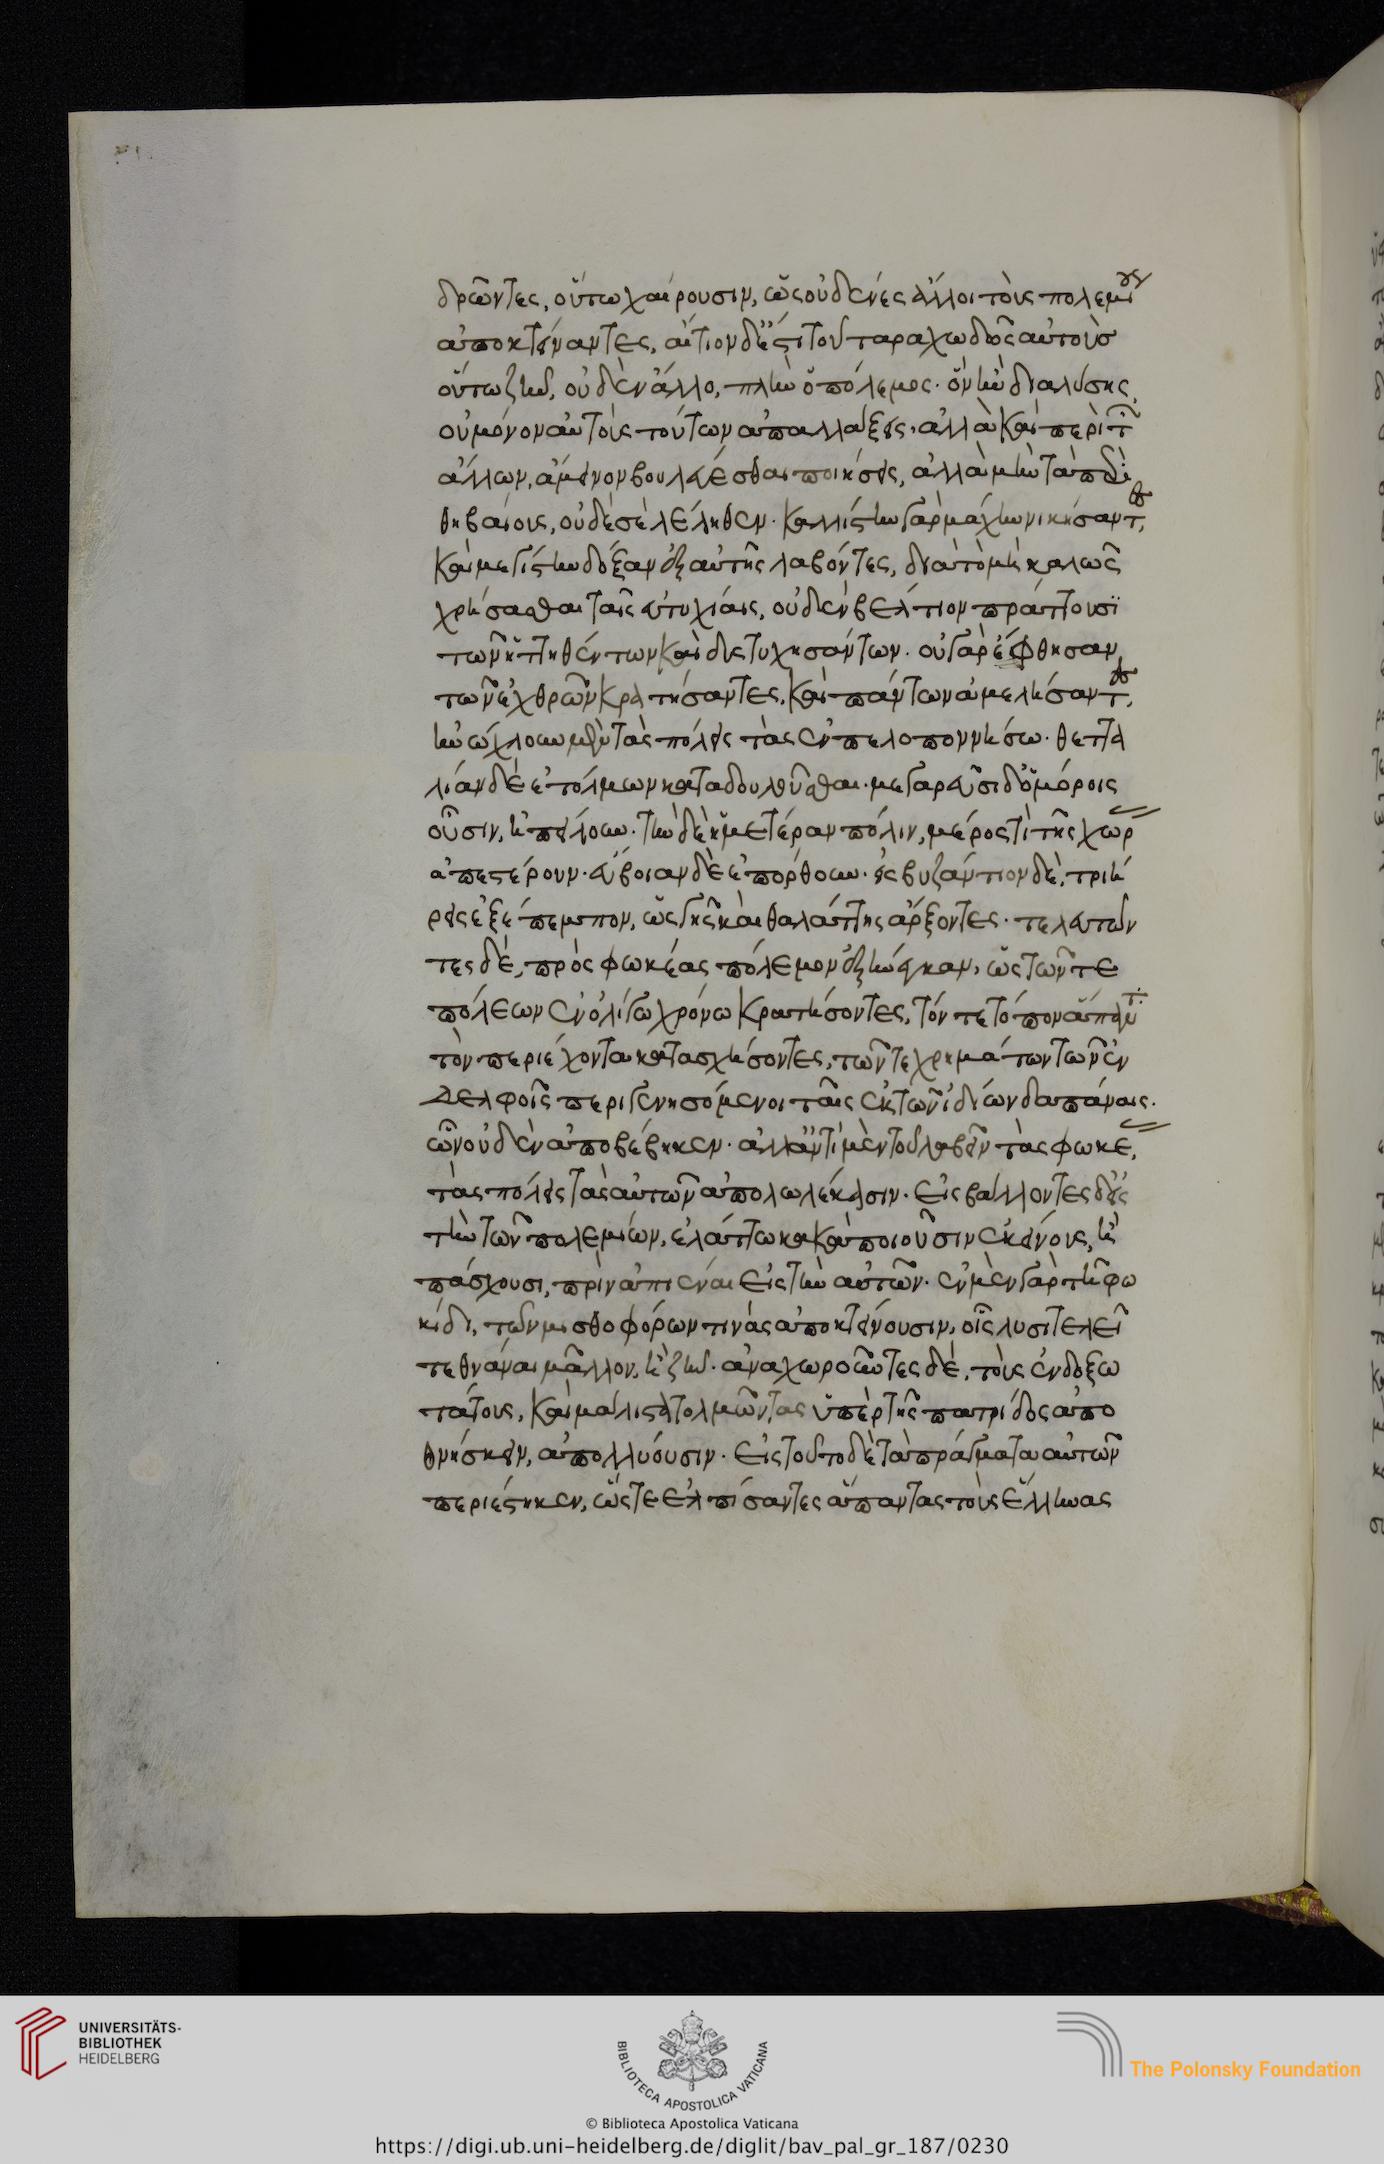 δρῶντες, οὕτω χαίρουσιν, ὡς οὐδενές ἄλλοι τοὺς πολεμίους
ἀποκτείναντες, αἴτιον δ' ἐστὶ τοῦ ταραχωδῶς αὐτοὺσ
οὕτω ζῆν, οὐδὲν ἄλλο, πλὴν ὁ πόλεμος. ὃν ἢν διαλύσης,
οὐ μόνον αὐτοὺς τούτων ἀπαλλάξεις, ἀλλὰ καὶ περὶ τῶν
ἄλλων, ἄμεινον βουλεύεσθαι ποιήσεις, ἀλλὰ μὴν τὰ περὶ
θηβαίους, οὐδέ σὲ λέληθεν. καλλίστην γὰρ μάχην νικήσαντες,
καὶ μεγίστην δόξαν ἐξ αὐτῆς λαβόντες, διὰ τὸ μὴ καλῶς
χρῆσασθαι ταῖς εὐτυχίαις, οὐδὲν βέλτιον πράττουσϊ
τῶν ἡττηθέντων καὶ δυστυχησάντων. οὐ γὰρ ἔφθησαν
τῶν ἐχθρῶν κρατήσαντες, καὶ πάντων ἀμελήσαντες,
ἠνώχλουν μὲν τὰς πόλεις τὰς ἐν πελοποννήσω. θεττα
λίαν δὲ ἐτόλμων καταδουλοῦσθαι. μεγαρεῦσι δ' ὁμόροις
οὖσιν, ἠπείλουν. τὴν δὲ ἡμετέραν πόλιν, μέρος τὶ τῆς χώρας
ἀπεστέρουν. εὔβοιαν δὲ ἐπόρθουν. εἰς βυζάντιον δὲ, τριή
ρεις ἐξέπεμπον, ὡς γῆς καὶ θαλάττης ἄρξοντες. τελευτῶν
τες δὲ, πρὸς φωκέας πόλεμον ἐξήνεγκαν, ὡς τῶν τε
πόλεων ἐν ὀλίγω χρόνω κρατήσοντες, τόν τε τόπον ἅπαντα
τὸν περιέχοντα κατασχήσοντες, τῶν τε χρημάτων τῶν ἐν
Δελφοῖς περιγενησόμενοι ταῖς ἐκ τῶν ἰδίων δαπάναις.
ὧν οὐδὲν ἀποβέβηκεν. ἀλλ' ἀντὶ μὲν τοῦ λαβεῖν τὰς φωκέων,
τὰς πόλεις τὰς αὑτῶν ἀπολωλέκασιν. εἰσβάλλοντες δ' εἰς
τὴν τῶν πολεμίων, ἐλάττω κακὰ ποιοῦσιν ἐκείνους, ἢ
πάσχουσι, πρὶν ἀπιέναι εἰς τὴν αὑτῶν. ἐν μὲν γὰρ τῆ φω
κίδι, τῶν μισθοφόρων τινὰς ἀποκτείνουσιν, οἷς λυσιτελεῖ
τεθνάναι μᾶλλον, ἢ ζῆν. ἀναχωροῦντες δὲ, τοὺς ἐνδοξω
τάτους, καὶ μάλιστα τολμῶντας ὑπὲρ τῆς πατρίδος ἀπο
θνήσκειν, ἀπολλύουσιν. εἰς τοῦτο δὲ τὰ πράγματα αὐτῶν
περιέστηκεν, ὥστε ἐλπίσαντες ἅπαντας τοὺς ἕλληνας
UNIVERSITÄTS-
BIBLIOTHEK
HEIDELBERG
BIBLIOTECA APOSTOLICA VATICANA
The Polonsky Foundation
© Biblioteca Apostolica Vaticana
https://digi.ub.uni-heidelberg.de/diglit/bav_pal_gr_187/0230